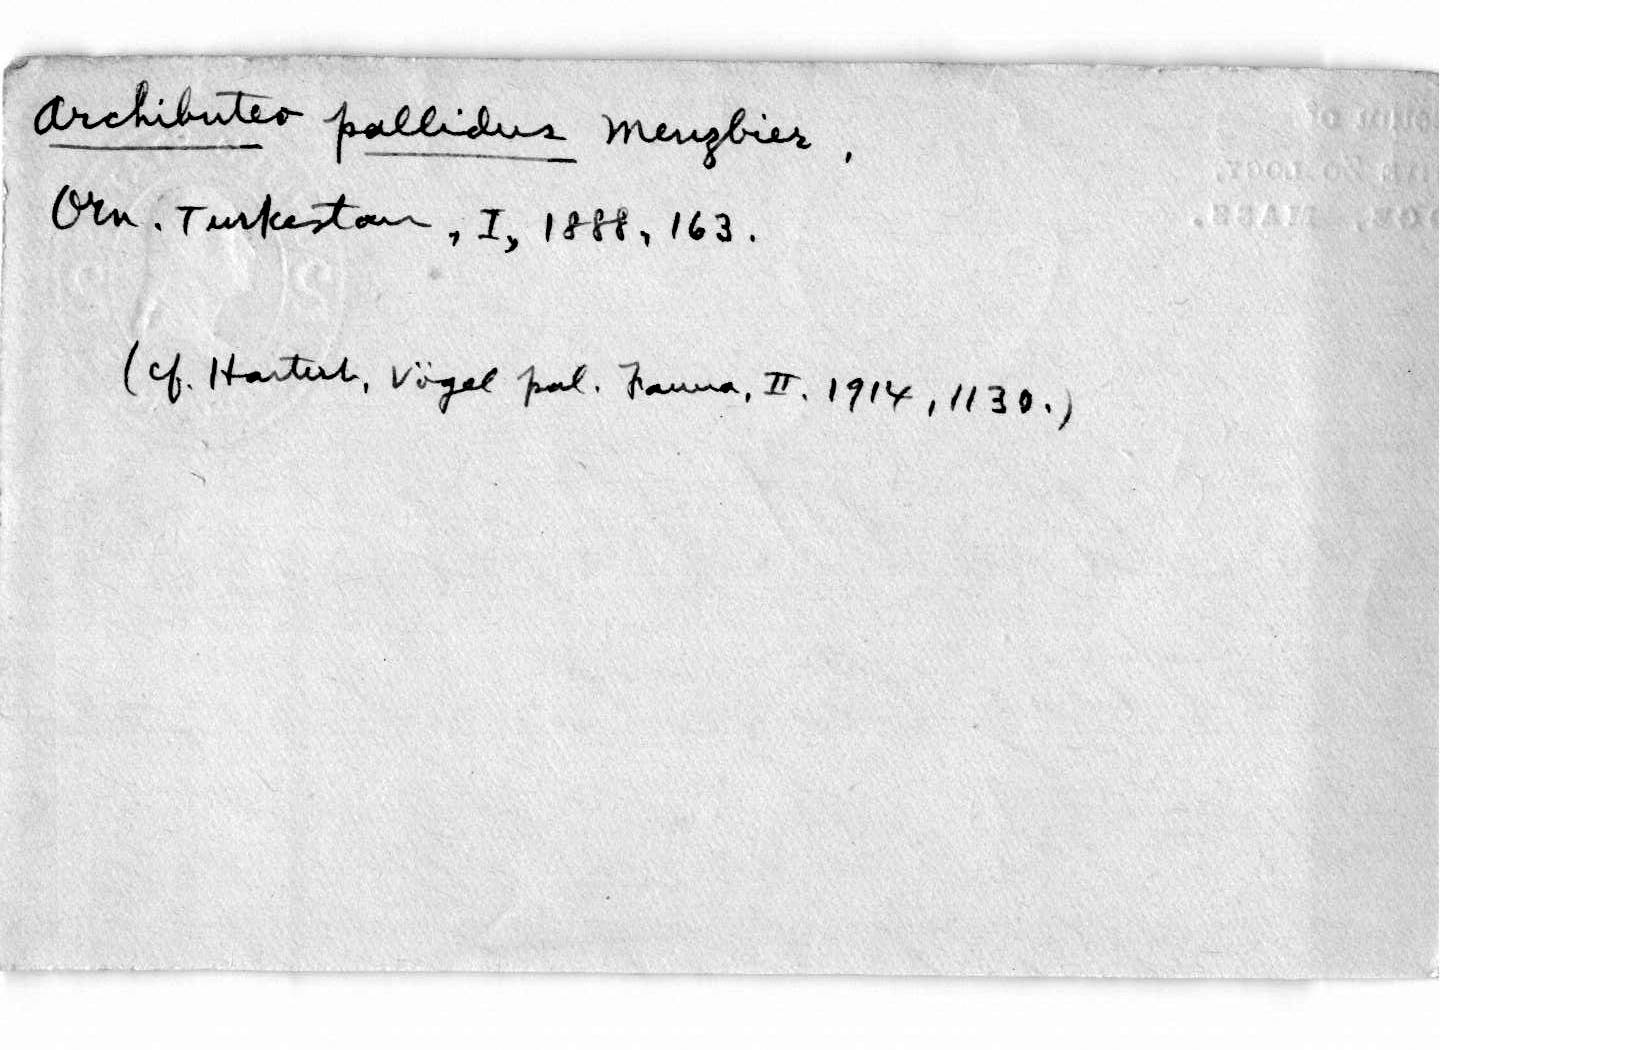 Archibuteo pallidus Menzbier,
Orn. Turkestan, I, 1888, 163.
(cf. Hartert, Vögel pal. Fauna, II. 1914, 1130.)